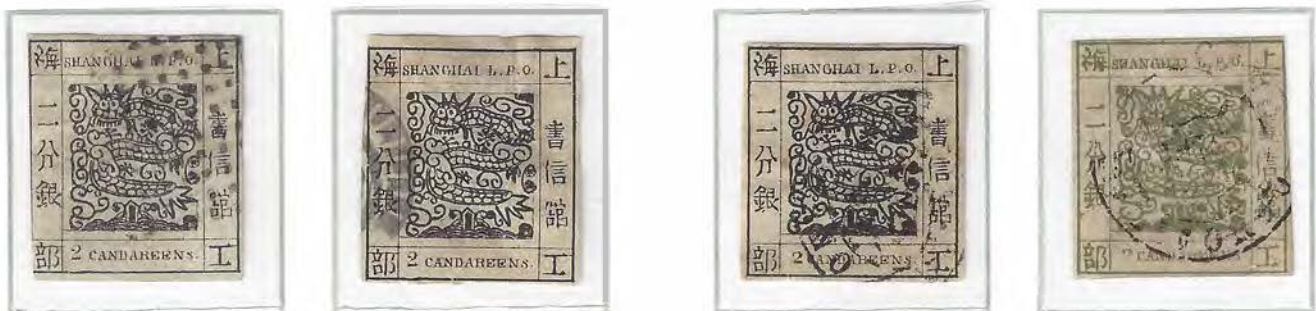 海 SHANGHAI L.P.O. 上
二分銀
書信館
部 2 CANDAREENS. 工
海 SHANGHAI L.P.O. 上
二分銀
書信館
部 2 CANDAREENS. 工
海 SHANGHAI L.P.O. 上
二分銀
書信館
部 2 CANDAREENS. 工
海 SHANGHAI L.P.O. 上
二分銀
部
工